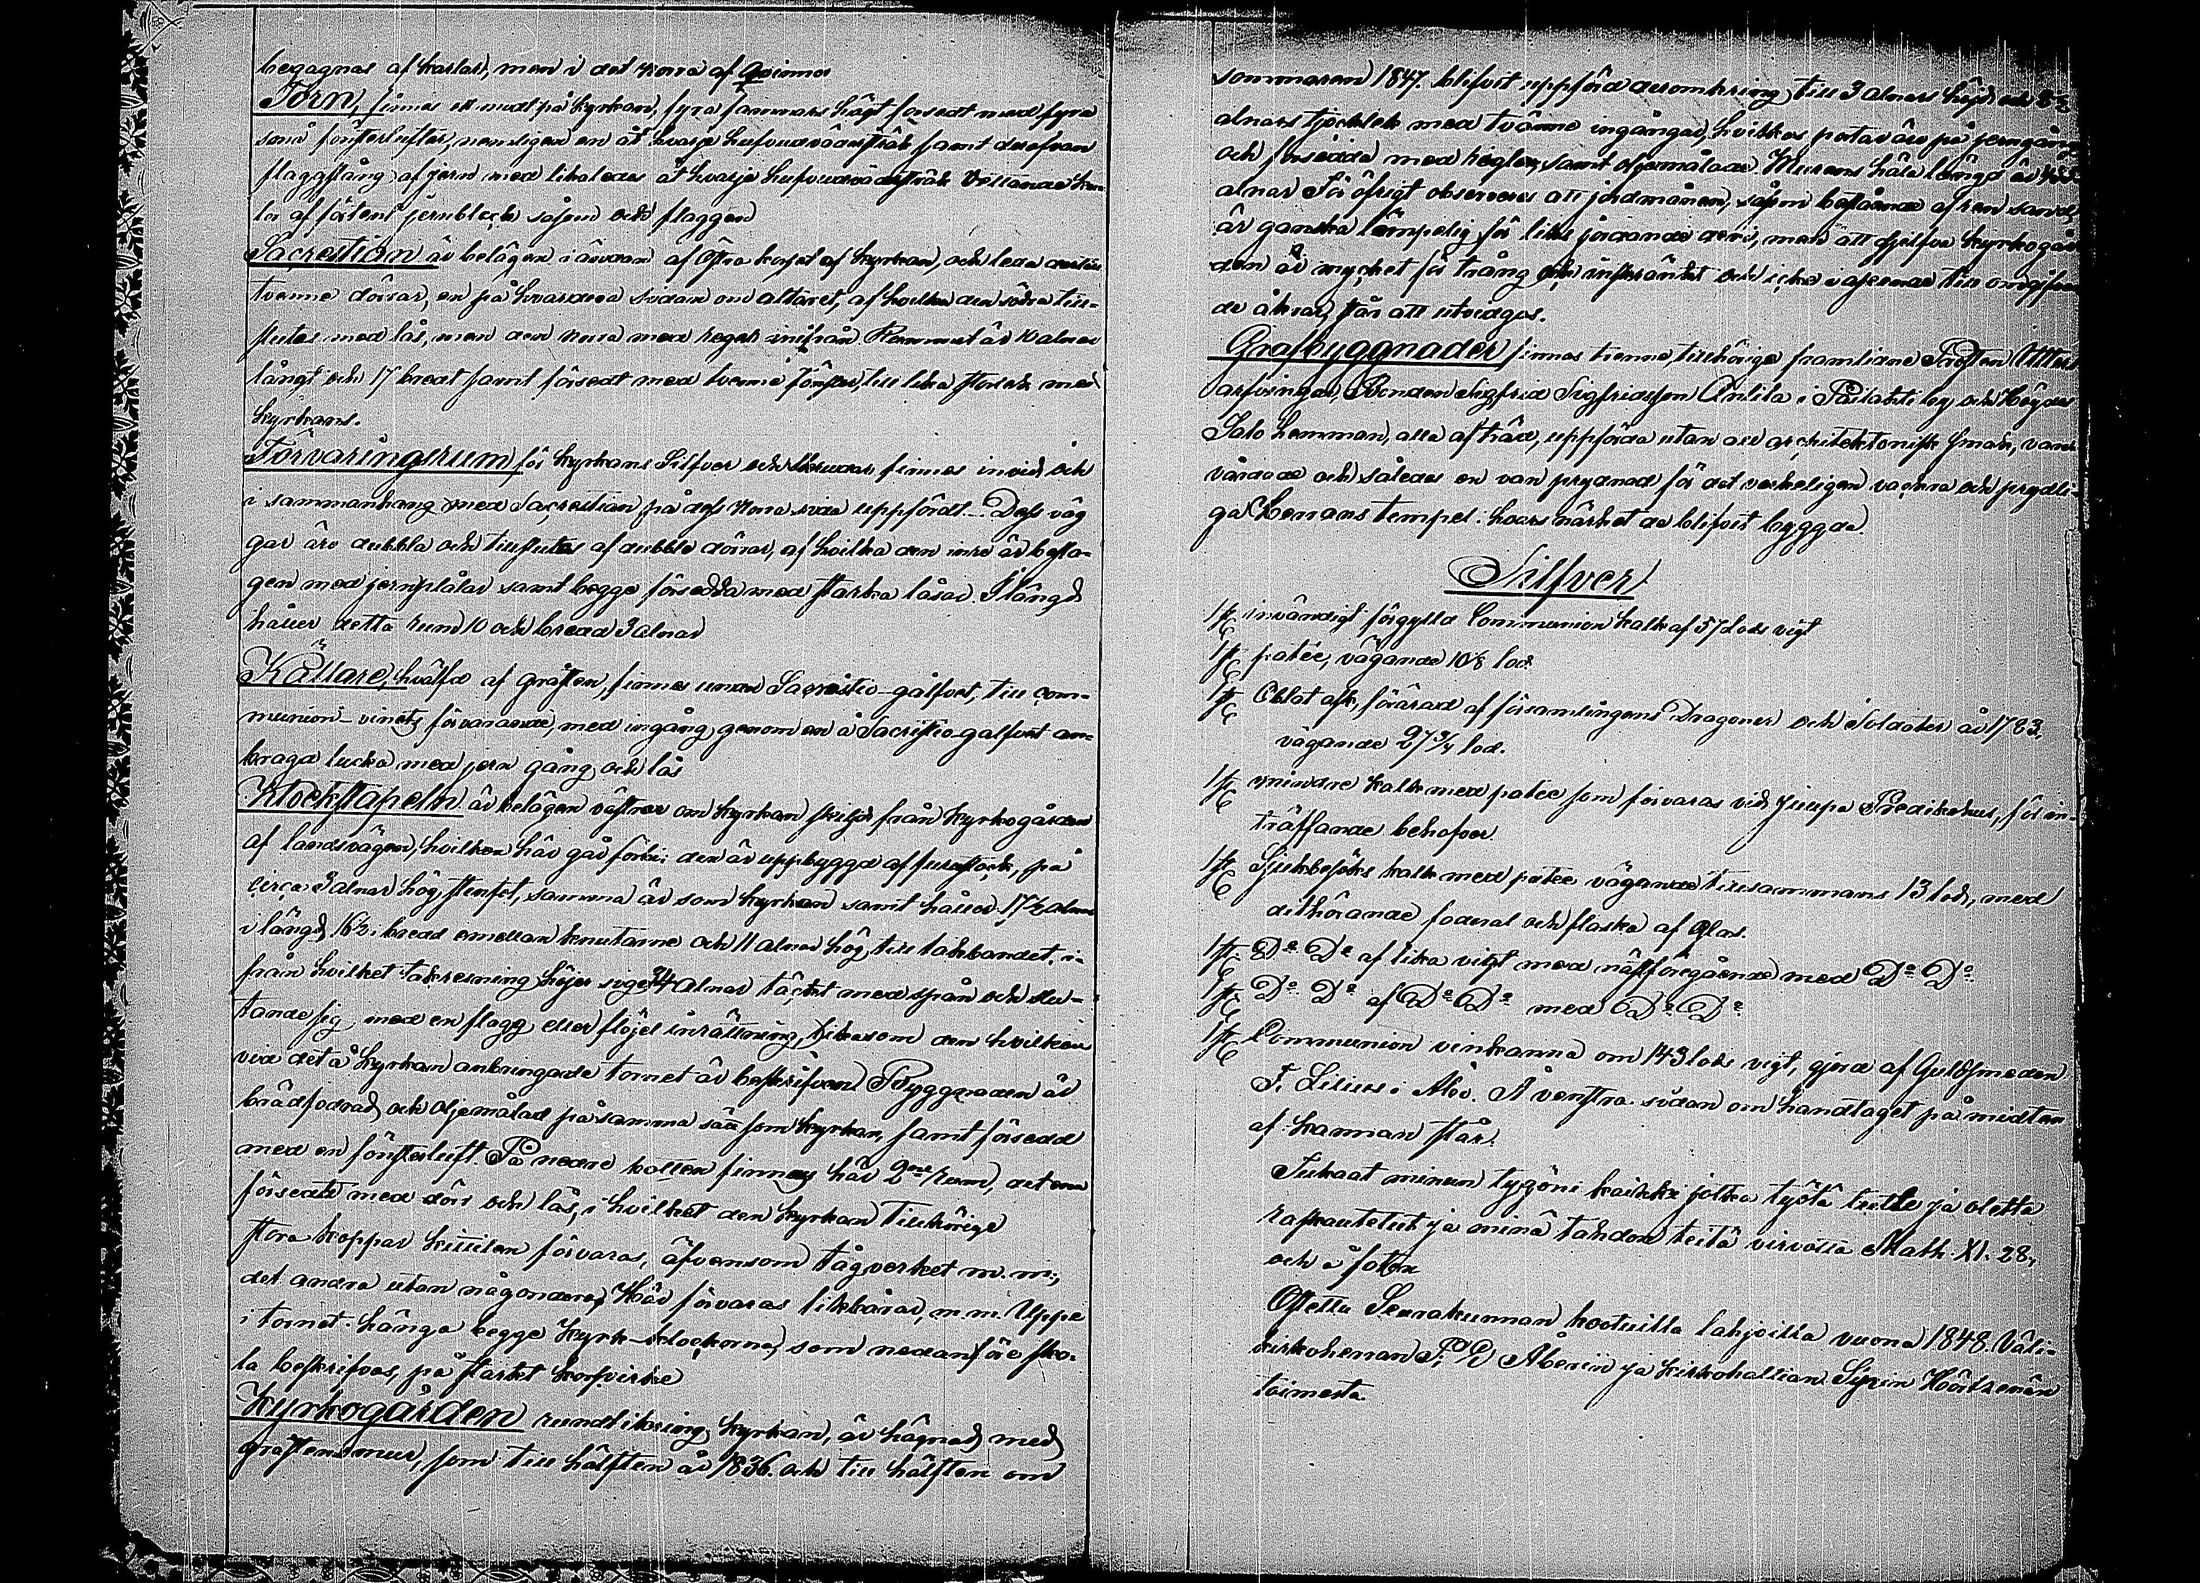 begagnas af karlar, men i det norra af qvinnor
Torn, finnes ett midt på kyrkan, fyra famnars högt försedt med fyra
små fönsterlufter, nemligen en åt hvarje hufvudvädersträk samt derofvan
flaggstång af jern med likaledes åt hvarje hufvudvädersträk
lor af förtent jernbleck såsom och flaggen
Sacrestian är belägen i ändan af Östra korset af kyrkan, och leda dertill
tvenne dörrar, en på hvardera sidan om altaret, af hvilka den södra till-
slutes med lås, men den norra med regel inifrån Rummet är 10 alnar
långt och 17 bredt samt försedt med tvenne fönster, till lika storlek med
kyrkans.
Förvaringsrum för kyrkans Silfver och skrudar finnes invid och
i sammanhang med Sacrestian på dess norra sida uppfördt. Dess väg
gar äro dubbla och tillslutas af dubbla dörrar, af hvilka den inre är besla-
gen med jernplåtar samt begge försedda med starka låsar. I längd
håller detta rum 10 och bredd 3 alnar
Källare, hvälfd af gråsten, finnes under Sacristie-gålfvet, till com-
munion-vinets förvarande, med ingång genom en å Sacristie-galfvet an-
bragd lucka med jern gång och lås
Klockstapeln är belägen vestrer om kyrkan skiljd från kyrkogården
af landsvägen, hvilken här går förbi; den är uppbyggd af furustock, på
circa 3 alnar hög stenfot, samma är som kyrkan samt håller 17½ alnar
i längd, 16½ i bredd emellan knutarne och 11 alnar hög till takbandet, i-
från hvilket takresning höjer sig 34 alnar täckt med spån och slu-
tande sig med en flagg eller flöjel inrättning, likasom den hvilken
vid det å kyrkan anbringade tornet är beskrifven. Byggnaden är
brädfodrad och oljemålad på samma sätt som kyrkan, samt försedd
med en fönsterluft. På nedre botten finnes här 2ne rum, det ena
försedt med dörr och lås, i hvilket den kyrkan tillhörige
stora koppar kitteln förvaras, äfvensom tågverket m. m.,
det andra utan någondera. Här förvaras likbårar, m. m. Uppe
i tornet hänga begge kyrk-klockorna, som nedanföre sko-
la beskrifvas, på starkt korsvirke
Kyrkogården rundtikring kyrkan, är hägnad med
gråstensmur, som till hälften år 1836 och till hälften om
sommaren 1847 blifvit uppförd deromkring till 3 alnars höjd och
alnars tjocklek med tvänne ingångar, hvilkas portar äro på jerngång
och försedda med reglar, samt oljemålade. Murens hela längd är
alnar. För öfrigt observeras att jordmånen, såsom bestående af ren sand,
är ganska lämpelig för liks jordande deri, men att sjelfva kyrkogår
den är mycket för trång och inskränkt och icke i afseende till omgifvan
de åkrar står att utvidgas.
Grafbyggnader finnas trenne, tillhörige framlidne Prosten
arfvingar, Bonden Sigfrid Sigfridsson Anlila i Pailahti by och
Salo hemman, alla af träd, uppförda utan all architektonisk smak, van-
vårdade och således en van prydnad för det verkeligen vackra och prydli
ga Herrans tempel. hvars närhet de blifvit byggda.
Silfver
1 st. invändigt förgylld Communion kalk af 57 lods vigt
1 st. patée, vägande 10⅛ lod
1 st. Oblat ask, förärad af församlingens Dragoner och Soldater år 1783,
vägande 27¾ lod.
1 st. mindre kalk med patée som förvaras vid Juupa Predikohus, för in-
träffande behofver
1 st. Sjukbesöks kalk med patée vägande tillsammans 13 lod, med
dithörande foderal och flaska af glas.
1 st. Do Do af lika vigt med nästföregående med Do Do
1 st. Do Do af Do Do med Do Do
1 st. Communion vinkanna om 143 lods vigt, gjord af Guldsmeden
F. Lilius i Åbo. Å venstra sidan om handtaget på midten
af kannan står.
Tulkaat minun tygöni kaikki jotka työtä teette ja oletta
raskautetut ja minä tahdon teitä virvotta Math. XI. 28,
och å foten
Ostettu Seurakunnan kootuilla lahjoilla vuona 1848. Väli-
kirkoherran F. R. Åbenin ja kirkohaltian Syrin Höckertin
toimesta.